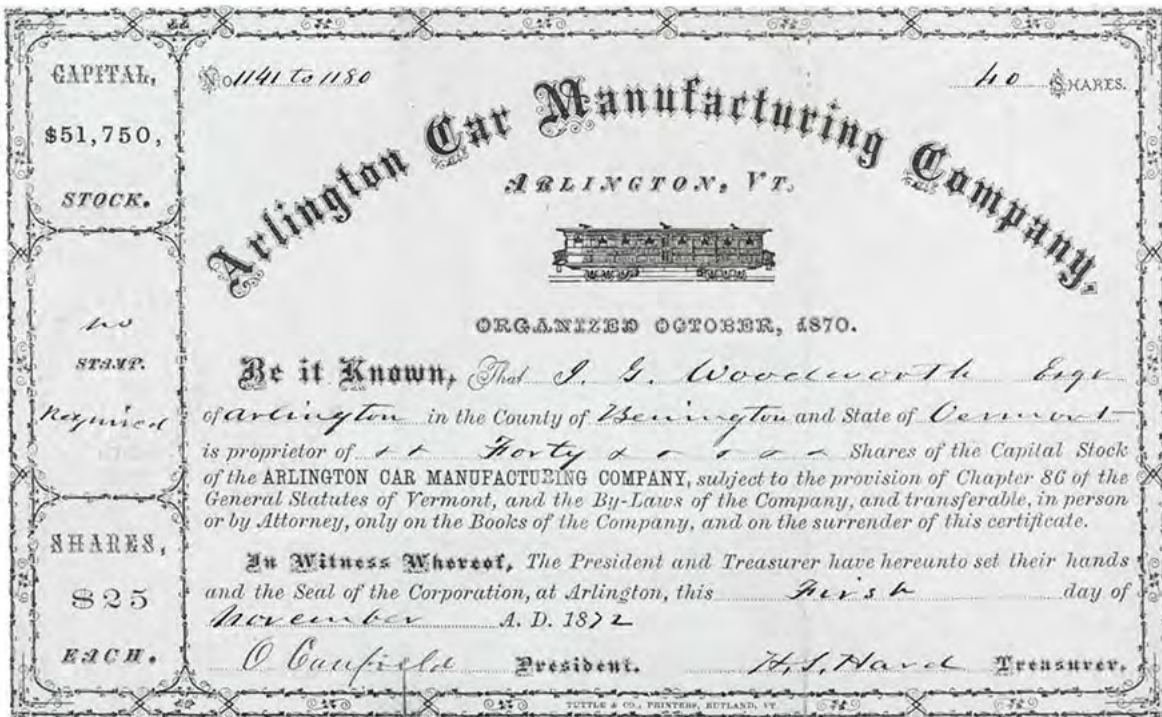 CAPITAL,
$51,750,
STOCK.
no
STAMP.
Required
SHARES,
$25
EACH.
No 1141 to 1180
40 SHARES.
Arlington Car Manufacturing Company,
ARLINGTON, VT.
ORGANIZED OCTOBER, 1870.
Be it Known, That I. G. Woodworth Esqr
of Arlington in the County of Benington and State of Vermont
is proprietor of Forty Shares of the Capital Stock
of the ARLINGTON CAR MANUFACTURING COMPANY, subject to the provision of Chapter 86 of the
General Statutes of Vermont, and the By-Laws of the Company, and transferable, in person
or by Attorney, only on the Books of the Company, and on the surrender of this certificate.
In Witness Whereof, The President and Treasurer have hereunto set their hands
and the Seal of the Corporation, at Arlington, this First day of
November A. D. 1872
O Canfield President. H. S. Hard Treasurer.
TUTTLE & CO., PRINTERS, RUTLAND, VT.